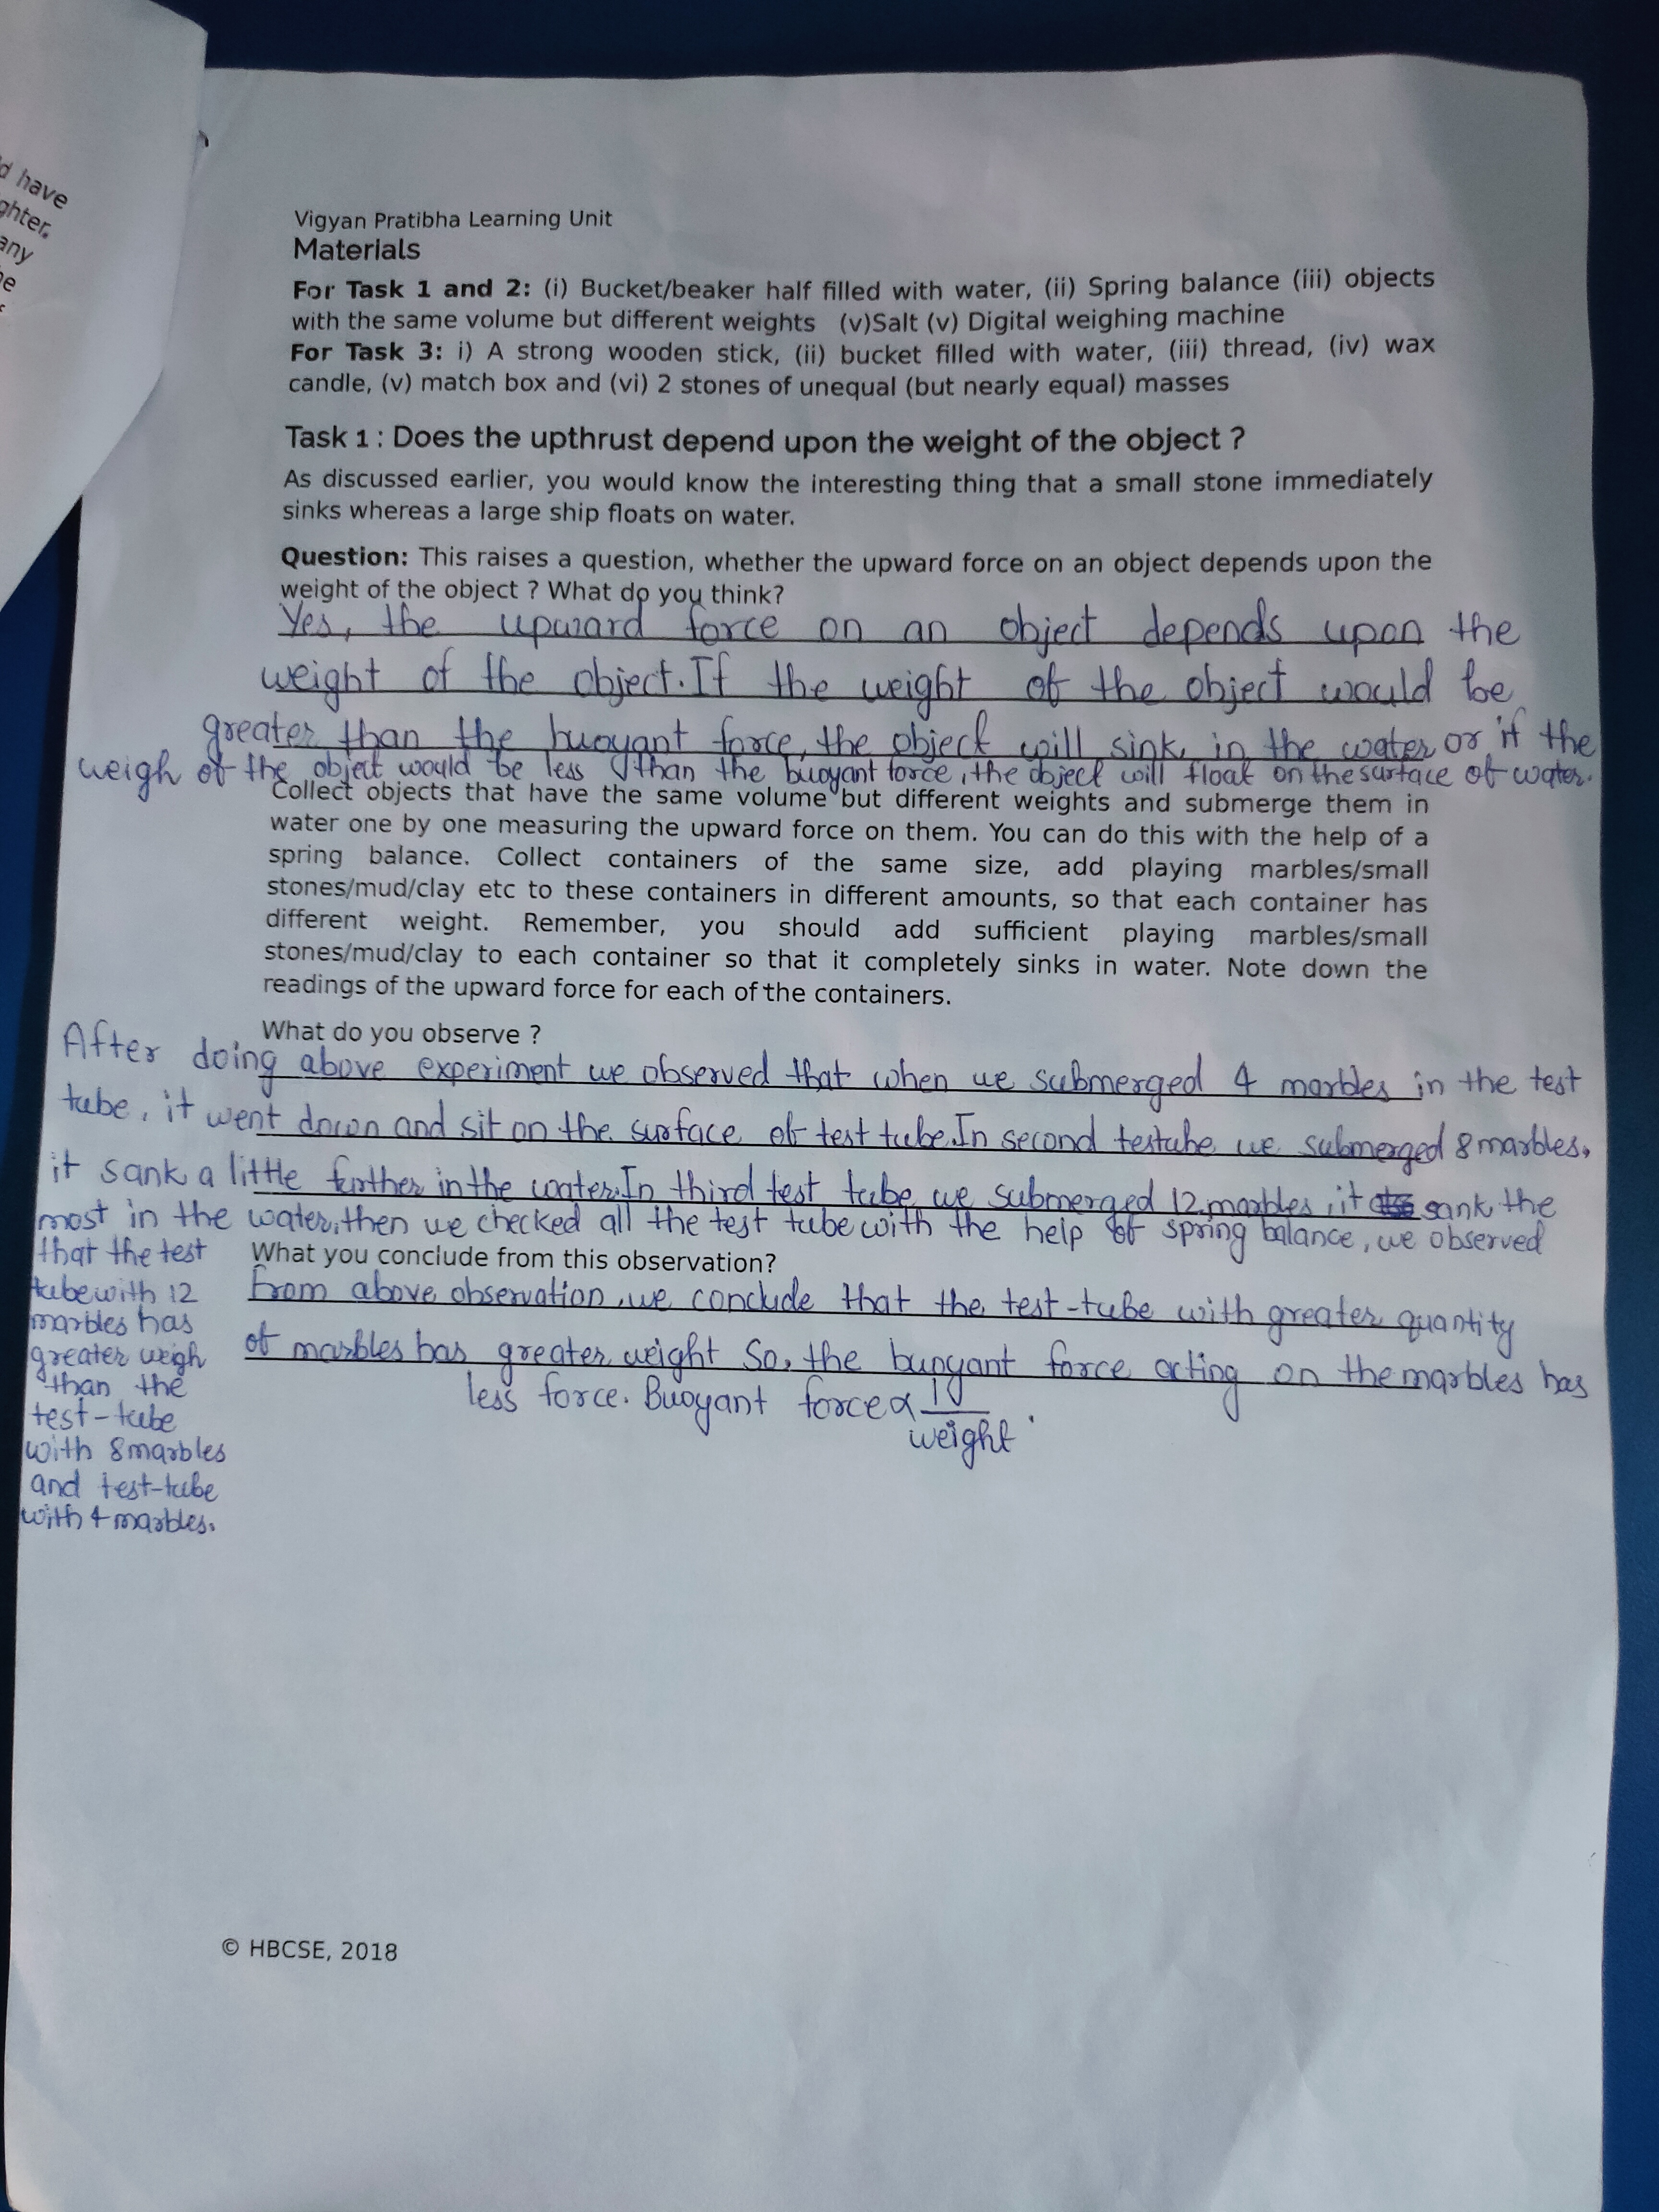 d have
ghter.
any
Vigyan Pratibha Learning Unit
Materials
For Task 1 and 2: (i) Bucket/beaker half filled with water, (ii) Spring balance (iii) objects
with the same volume but different weights (v)Salt (v) Digital weighing machine
For Task 3: i) A strong wooden stick, (ii) bucket filled with water, (iii) thread, (iv) wax
candle, (v) match box and (vi) 2 stones of unequal (but nearly equal) masses
Task 1 : Does the upthrust depend upon the weight of the object ?
As discussed earlier, you would know the interesting thing that a small stone immediately
sinks whereas a large ship floats on water.
Question: This raises a question, whether the upward force on an object depends upon the
weight of the object ? What do you think?
Yes, the upward force on an object depends upon the
weight of the object. If the weight of the object would be
greater than the buoyant force, the object will sink in the water or if the
weigh of the object would be less than the buoyant force, the object will float on the surface of water.
Collect objects that have the same volume but different weights and submerge them in
water one by one measuring the upward force on them. You can do this with the help of a
spring balance. Collect containers of the same size, add playing marbles/small
stones/mud/clay etc to these containers in different amounts, so that each container has
different weight. Remember, you should add sufficient playing marbles/small
stones/mud/clay to each container so that it completely sinks in water. Note down the
readings of the upward force for each of the containers.
What do you observe ?
After doing above experiment we observed that when we submerged 4 marbles in the test
tube, it went down and sit on the surface of test tube. In second testube we submerged 8 marbles,
it sank a little further in the water. In third test tube we submerged 12 marbles, it sank the
most in the water, then we checked all the test tube with the help of spring balance, we observed
that the test
tube with 12
marbles has
greater weigh
than the
test-tube
with 8 marbles
and test-tube
with 4 marbles.
What you conclude from this observation?
From above observation, we conclude that the test-tube with greater quantity
of marbles has greater weight So, the buoyant force acting on the marbles has
less force. Buoyant force α 1/weight.
© HBCSE, 2018